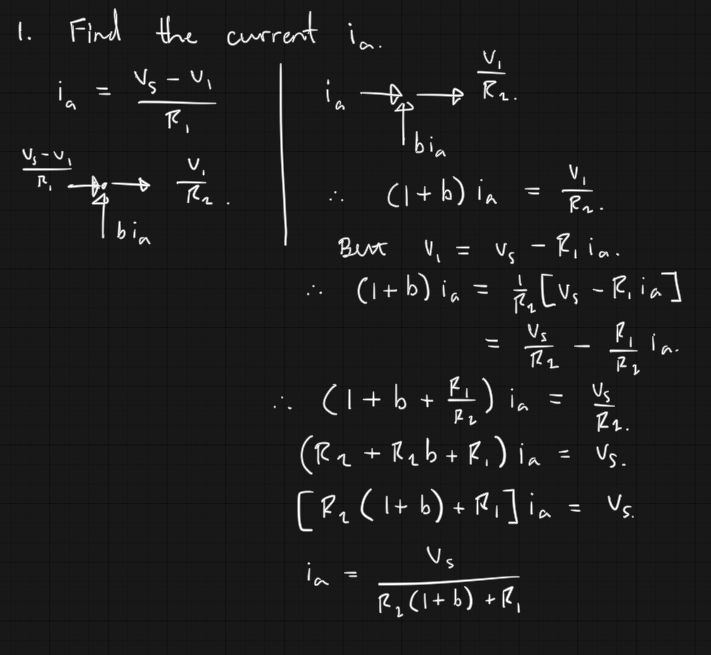 1. Find the current i_a.
i_a = (v_s - v_1)/R_1
(v_s - v_1)/R_1 → → v_1/R_2.
↑ b i_a
i_a → → v_1/R_2.
↑ b i_a
∴ (1+b) i_a = v_1/R_2.
But v_1 = v_s - R_1 i_a.
∴ (1+b) i_a = 1/R_2 [v_s - R_1 i_a]
= v_s/R_2 - R_1/R_2 i_a.
∴ (1 + b + R_1/R_2) i_a = v_s/R_2.
(R_2 + R_2 b + R_1) i_a = v_s.
[R_2 (1+b) + R_1] i_a = v_s.
i_a = v_s/(R_2 (1+b) + R_1)